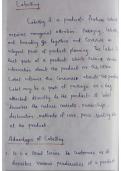 Labelling
Labelling is a product feature which
requires marginal attention. Packaging, labelling
and branding go together and constitute an
integral part of product planning. The label is
that part of a product which carries
information about the product or the seller.
Label informs the consumer about the product.
Label may be a part of package or a tag
attached directly to the product. It
describes the nature, contents, ownership,
destination, methods of use, price, quality etc
of the product.
Advantages of Labelling
1. It is a social service to customers, as it
describes various peculiarities of a product